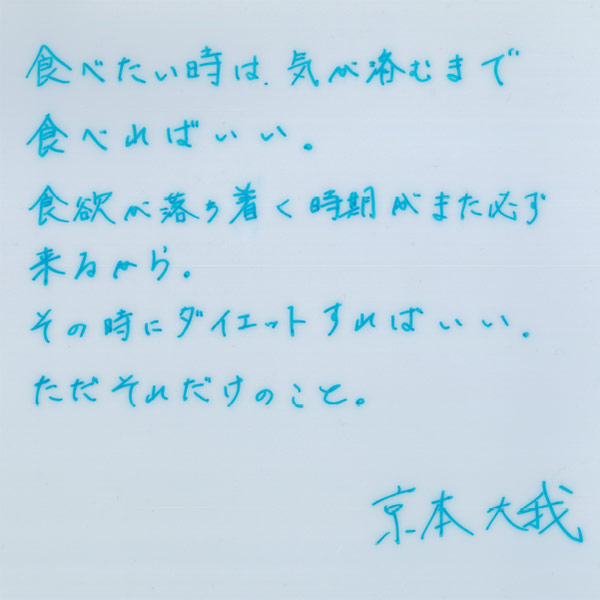 食べたい時は、気が済むまで
食べればいい。
食欲が落ち着く時期がまた必ず
来るから。
その時にダイエットすればいい。
ただそれだけのこと。
京本大我